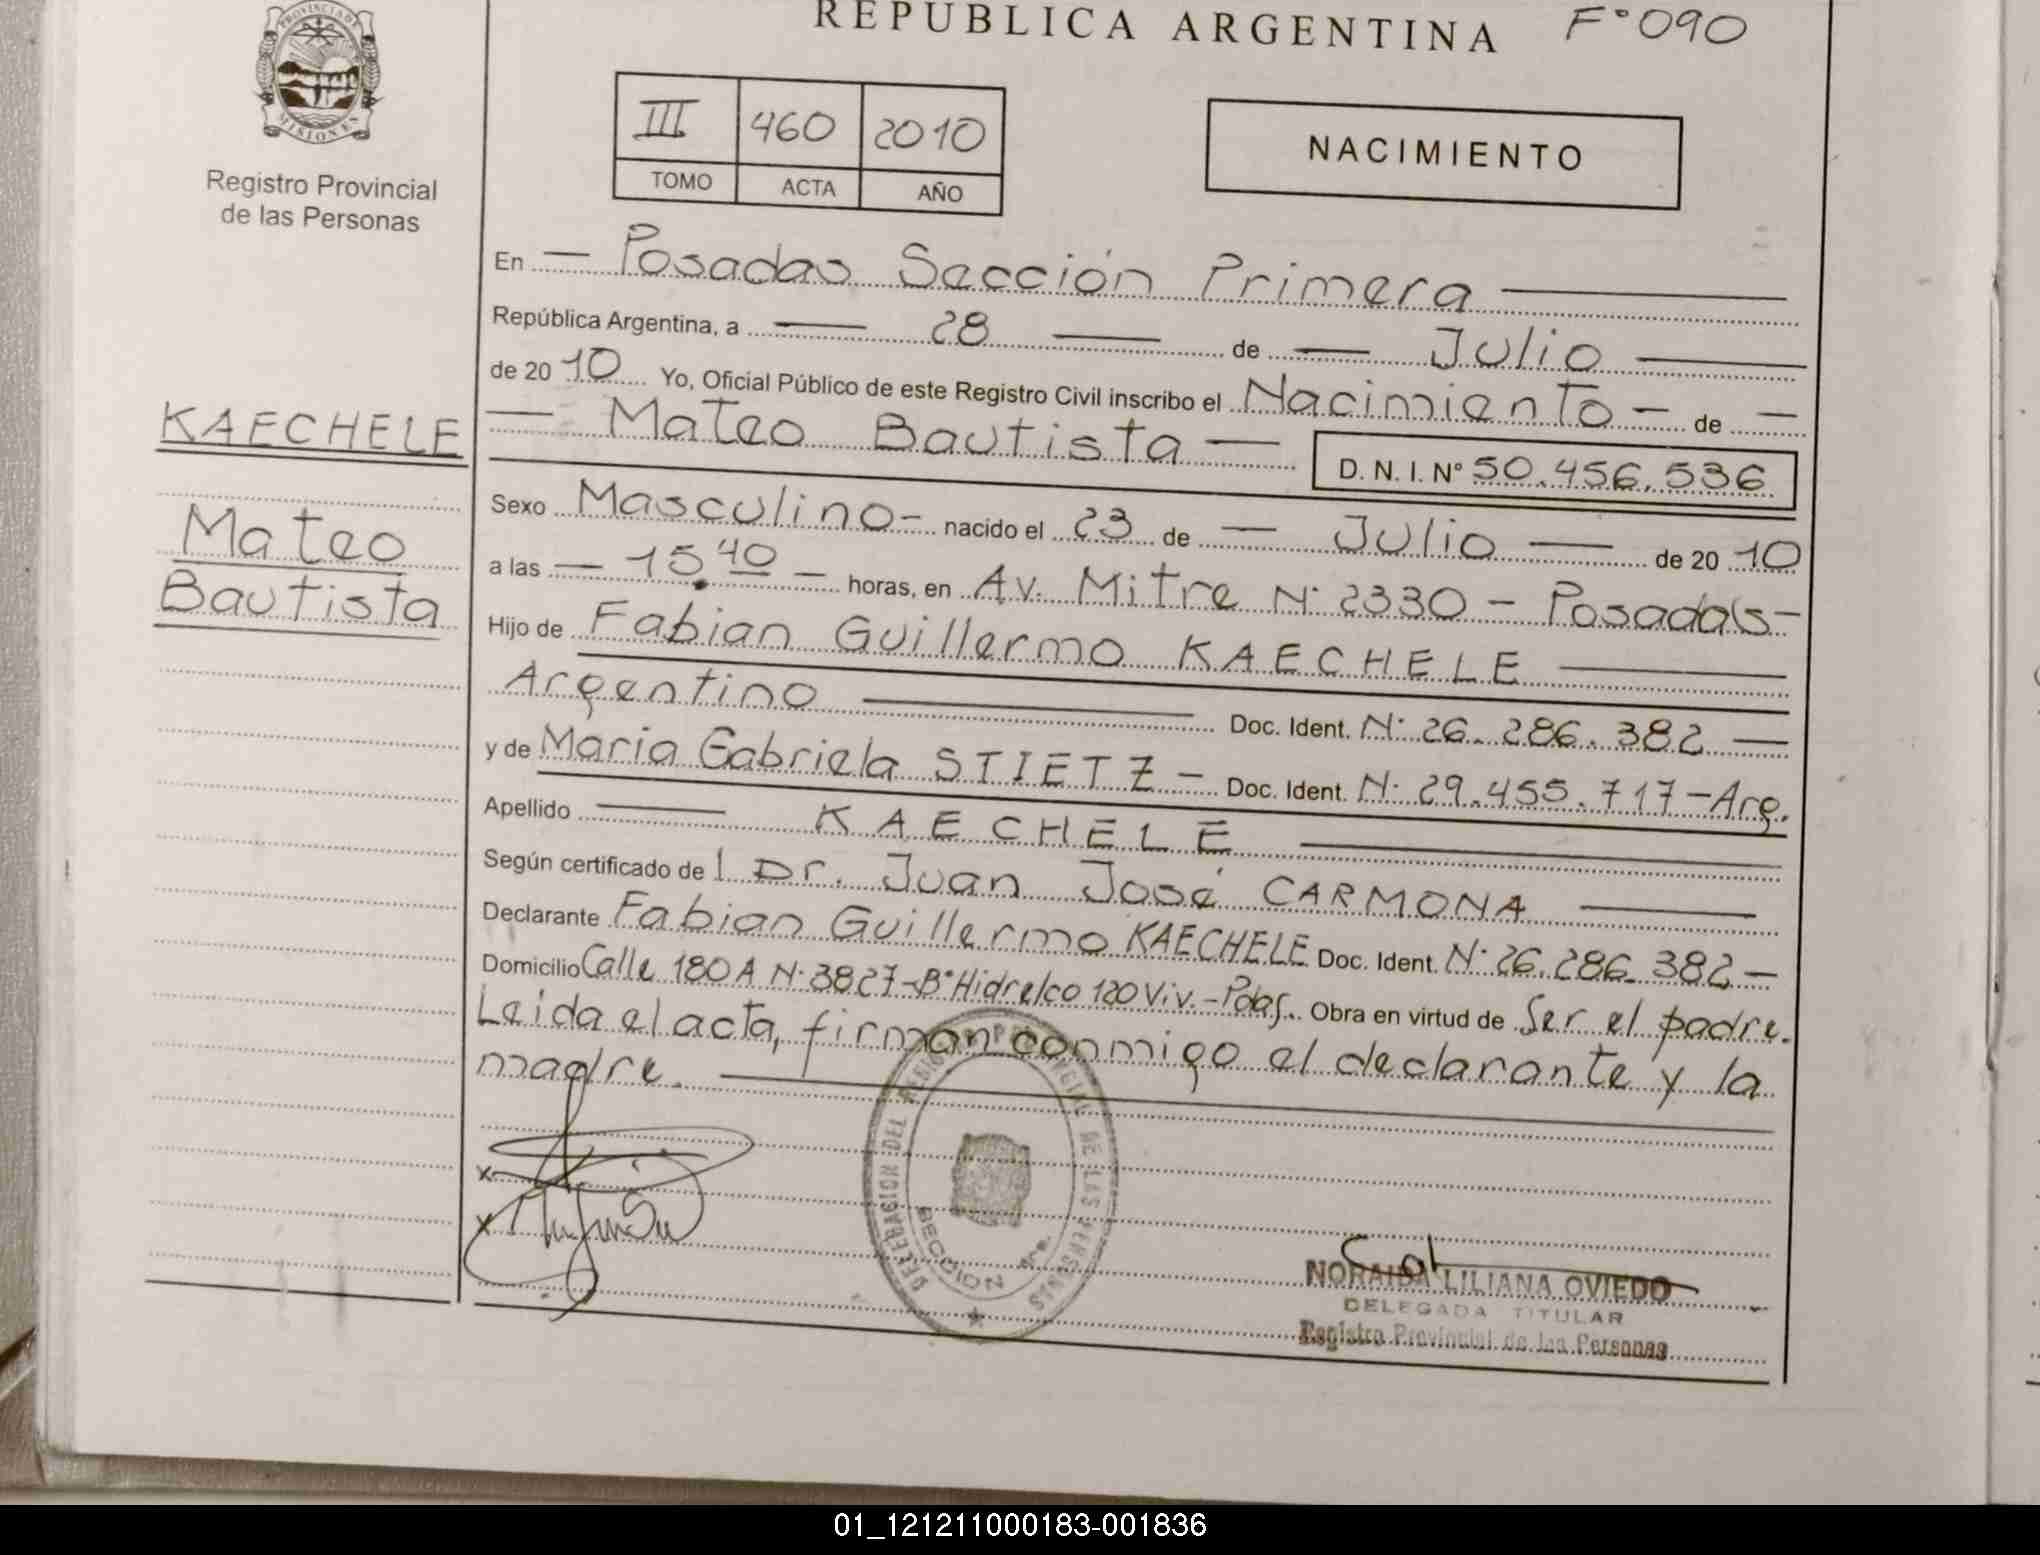 PROVINCIA DE
MISIONES
Registro Provincial
de las Personas
REPUBLICA ARGENTINA F° 090
III 460 2010
TOMO ACTA AÑO
NACIMIENTO
En — Posadas Sección Primera —
República Argentina, a — 28 — de — Julio —
de 20 10 Yo, Oficial Público de este Registro Civil inscribo el Nacimiento — de —
— Mateo Bautista — D. N. I. N° 50.456.536
KAECHELE
Mateo
Bautista
Sexo Masculino - nacido el 23 de — Julio — de 20 10
a las — 15.40 — horas, en Av. Mitre N° 2330 - Posadas -
Hijo de Fabian Guillermo KAECHELE —
Argentino — Doc. Ident. N° 26.286.382 —
y de Maria Gabriela STIETZ - Doc. Ident. N° 29.455.717 - Arg.
Apellido — KAECHELE —
Según certificado de l Dr. Juan José CARMONA —
Declarante Fabian Guillermo KAECHELE Doc. Ident. N° 26.286.382 —
Domicilio Calle 180A N° 3827 - B° Hidrelco 120 Viv. - Pdas. Obra en virtud de Ser el padre.
Leida el acta, firman conmigo el declarante y la
madre. —
x
x
DELEGACION DEL REGISTRO PROVINCIAL DE LAS PERSONAS
SECCION 1ra.
NORAIDA LILIANA OVIEDO
DELEGADA TITULAR
Registro Provincial de las Personas
01_121211000183-001836